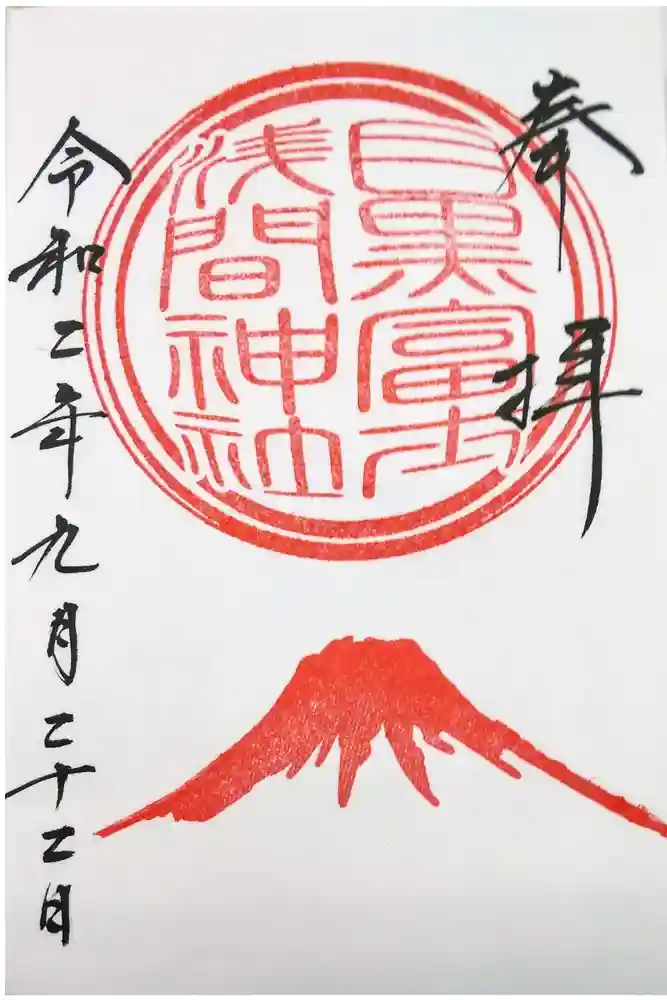 奉拝
目黒富士
浅間神社
令和二年九月二十二日